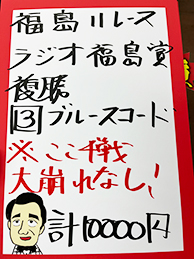 福島11レース
ラジオ福島賞
複勝
13ブルースコード
※ここ千戦
大崩れなし!
計10000円